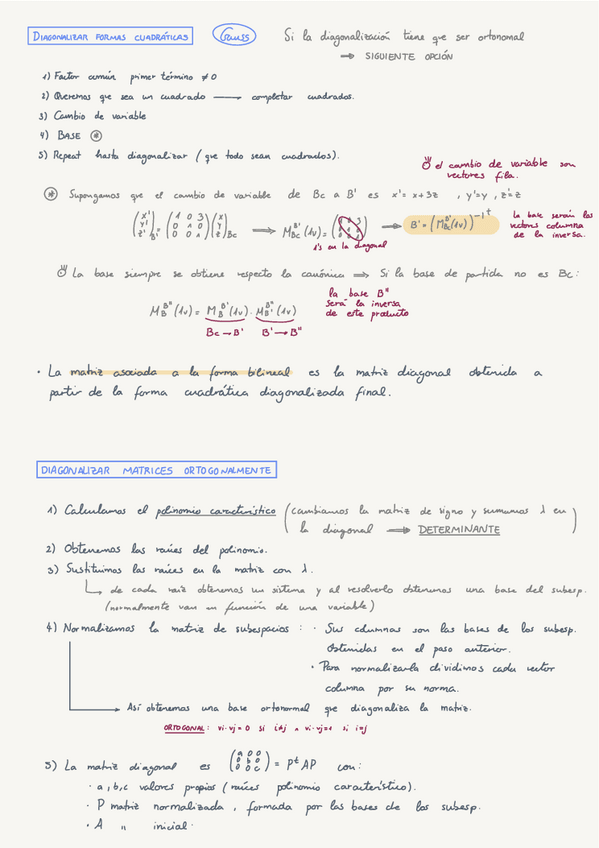 DIAGONALIZAR FORMAS CUADRÁTICAS Gauss Si la diagonalización tiene que ser ortonomal
⇒ SIGUIENTE OPCIÓN
1) Factor común primer término ≠ 0
2) Queremos que sea un cuadrado → completar cuadrados.
3) Cambio de variable
4) BASE *
5) Repeat hasta diagonalizar (que todo sean cuadrados).
el cambio de variable son
vectores fila.
* Supongamos que el cambio de variable de Bc a B' es x'= x+3z , y'=y , z'=z
(x' y' z')B' = (1 0 3 0 1 0 0 0 1)(x y z)Bc ⇒ M Bc B' (1v) = ⇒ B' = (M Bc B' (1v))⁻¹ᵗ
1's en la diagonal
la base serán los
vectores columna
de la inversa.
La base siempre se obtiene respecto la canónica ⇒ Si la base de partida no es Bc:
M B B'' (1v) = M B B' (1v) · M B' B'' (1v)
Bc → B' B' → B''
la base B''
será la inversa
de este producto
· La matriz asociada a la forma bilineal es la matriz diagonal obtenida a
partir de la forma cuadrática diagonalizada final.
DIAGONALIZAR MATRICES ORTOGONALMENTE
1) Calculamos el polinomio característico (cambiamos la matriz de signo y sumamos λ en
la diagonal → DETERMINANTE)
2) Obtenemos las raíces del polinomio.
3) Sustituimos las raíces en la matriz con λ.
de cada raíz obtenemos un sistema y al resolverlo obtenemos una base del subesp.
(normalmente van en función de una variable)
4) Normalizamos la matriz de subespacios : · Sus columnas son las bases de los subesp.
obtenidas en el paso anterior.
· Para normalizarla dividimos cada vector
columna por su norma.
Así obtenemos una base ortonormal que diagonaliza la matriz.
ORTOGONAL: vi·vj=0 si i≠j ∧ vi·vj=1 si i=j
5) La matriz diagonal es (a 0 0 0 b 0 0 0 c) = Pᵗ AP con:
· a, b, c valores propios (raíces polinomio característico).
· P matriz normalizada, formada por las bases de los subesp.
· A " inicial.